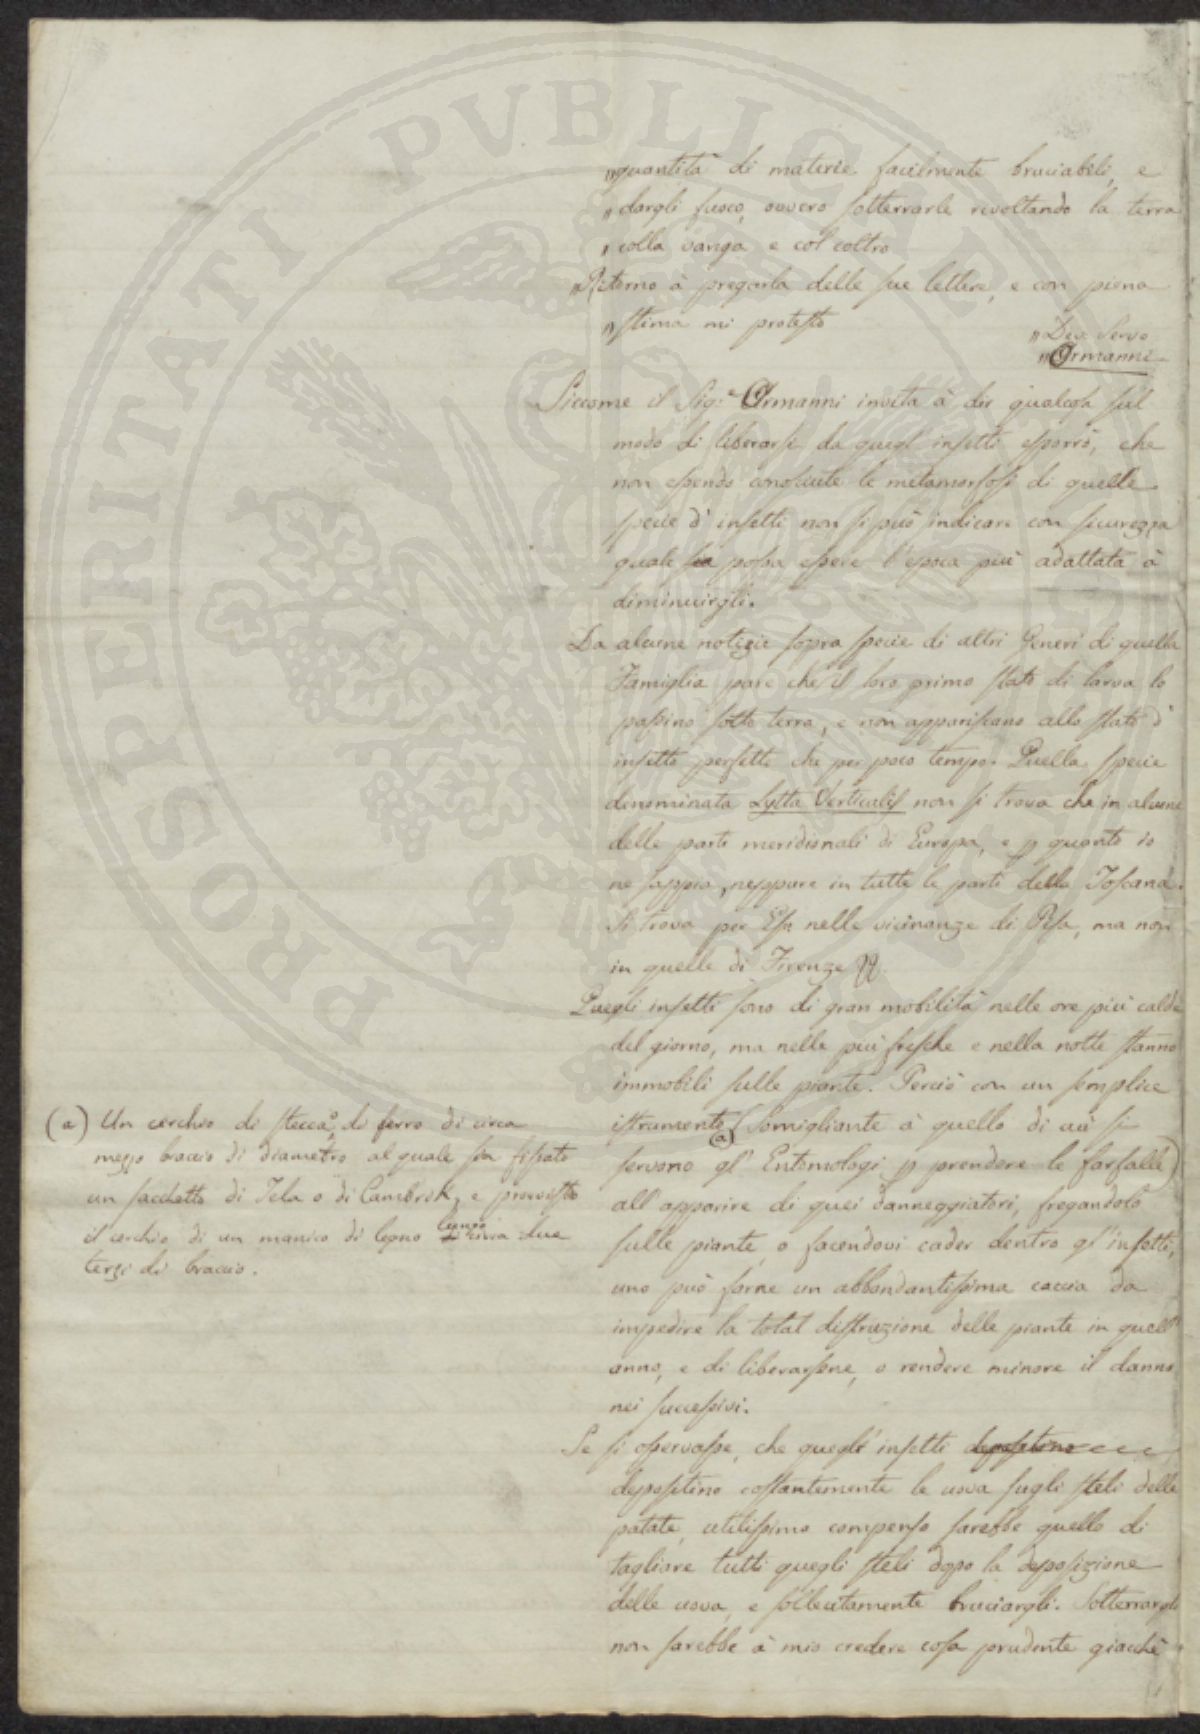 „quantità di materie facilmente bruciabili, e
„dargli fuoco, ovvero sotterrarle rivoltando la terra
„colla vanga e col coltro
„Ritorno à pregarla delle sue lettere, e con piena
„stima mi protesto
„Dev. Servo
„Ormanni
Siccome il Sig:e Ormanni invita à dir qualcosa sul
modo di liberarsi da quegl'insetti esporrò, che
non essendo conosciute le metamorfosi di quelle
specie d'insetti non si può indicare con sicurezza
quale sia possa essere l'epoca più adattata à
diminuirgli.
Da alcune notizie sopra specie di altri Generi di quella
Famiglia pare che il loro primo stato di larva lo
passino sotto terra, e non appariscano allo stato d'
insetto perfetto che per poco tempo. Quella specie
denominata Lytta Verticalis non si trova che in alcune
delle parti meridionali di Europa, e p quanto io
ne sappia, neppure in tutte le parti della Toscana.
Si trova per Es. nelle vicinanze di Pisa, ma non
in quelle di Firenze
Quegli insetti sono di gran mobilità nelle ore più calde
del giorno, ma nelle più fresche e nella notte stanno
immobili sulle piante. Perciò con un semplice
istrumento (Somigliante à quello di cui si
(a)
servono gl'Entomologi p prendere le farfalle)
all'apparire di quei danneggiatori, fregandolo
sulle piante, o facendovi cader dentro gl'insetti,
uno può farne un abbondantissima caccia da
impedire la total distruzione delle piante in quell'
anno, e di liberarsene, o rendere minore il danno
nei successivi.
Se si osservasse, che quegli insetti depositino
depositino costantemente le uova sugli steli delle
patate, utilissimo compenso sarebbe quello di
tagliare tutti quegli steli dopo la deposizione
delle uova, e sollecitamente bruciargli. Sotterrargli
non sarebbe à mio credere cosa prudente giacchè
(a) Un cerchio di stecca, o di ferro di circa
mezzo braccio di diametro al quale sia fissato
un sacchetto di Tela o di Cambrik, e provvisto
il cerchio di un manico di legno lungo circa due
terzi di braccio.
PROSPERITATI PVBLICAE